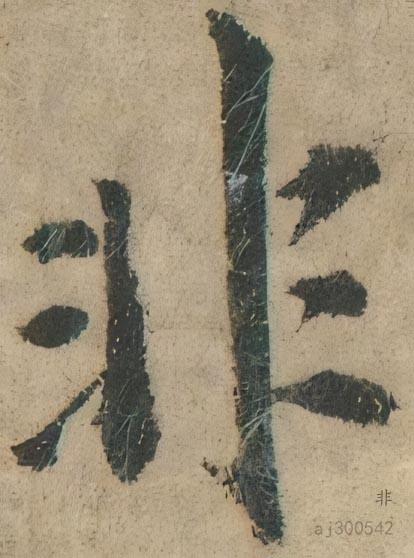 非
非
aj300542